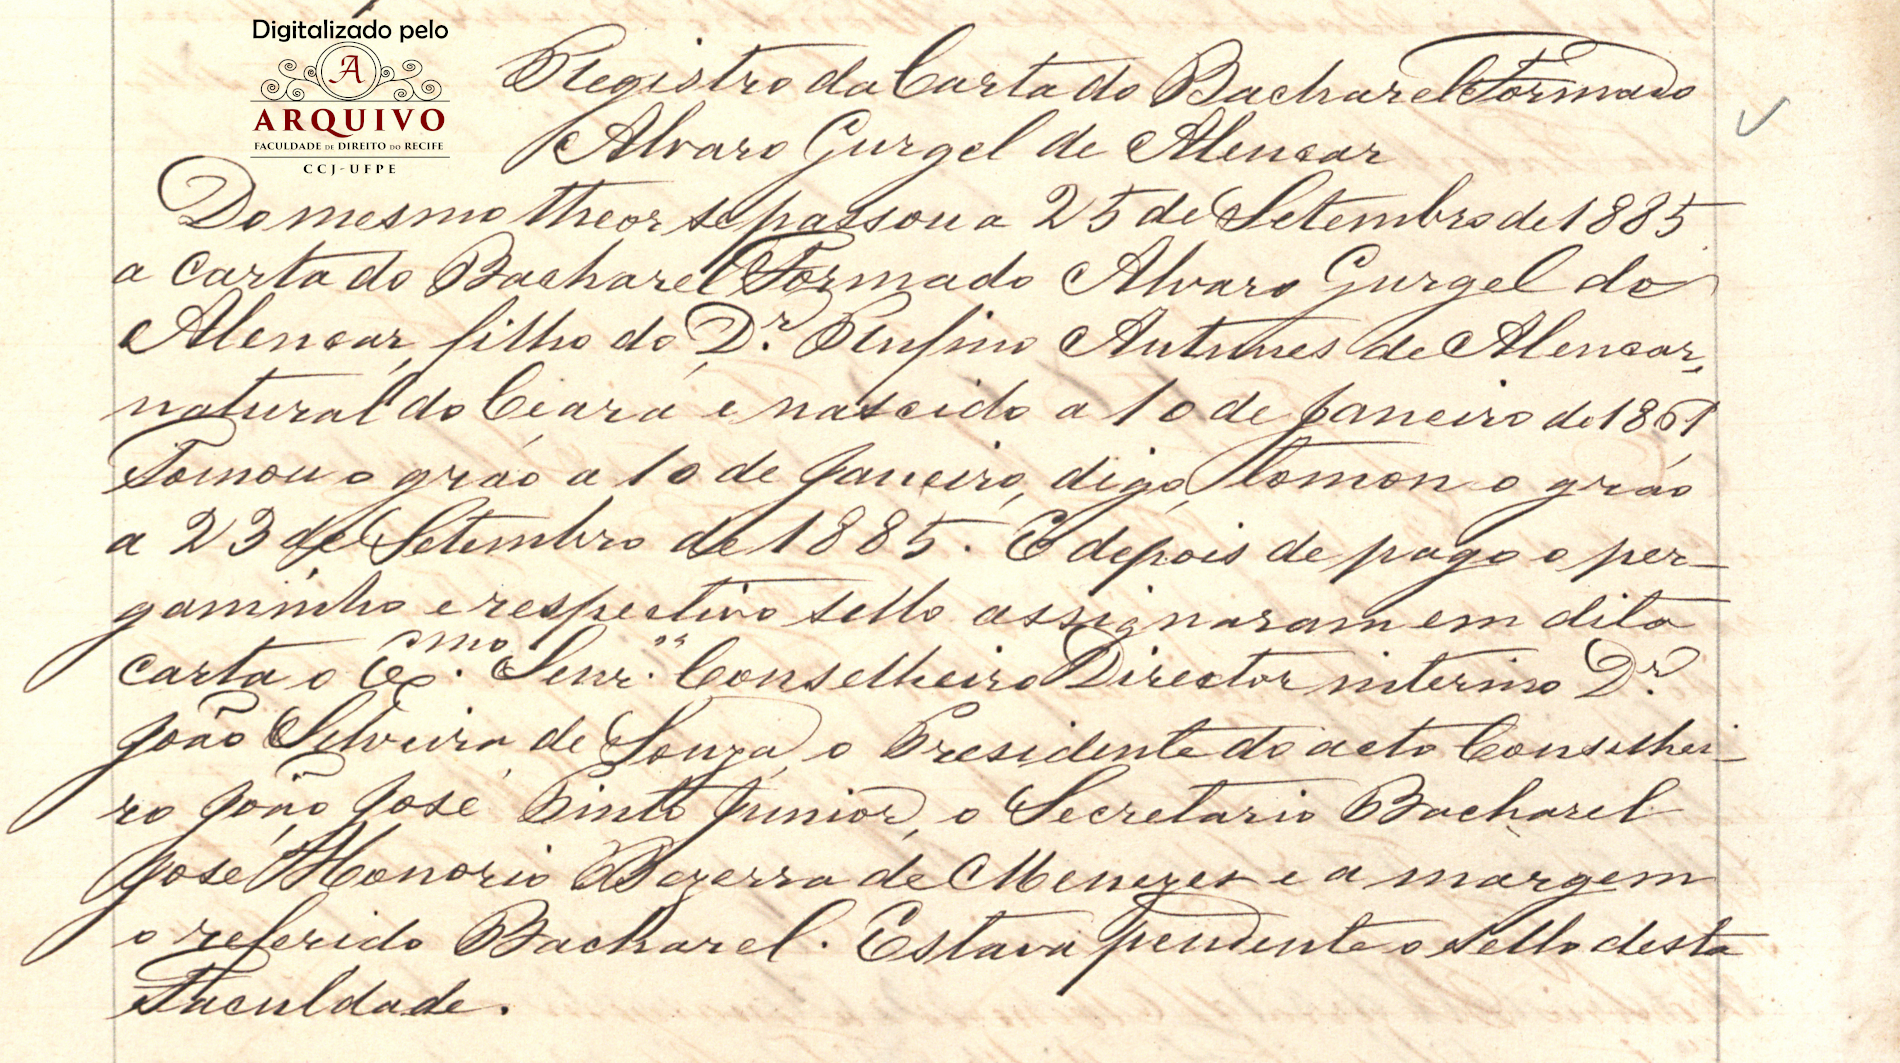 Digitalizado pelo
A
ARQUIVO
FACULDADE DE DIREITO DO RECIFE
CCJ-UFPE
Registro da Carta do Bacharel Formado
Alvaro Gurgel de Alencar
Do mesmo theor se passou a 25 de Setembro de 1885
a Carta do Bacharel Formado Alvaro Gurgel de
Alencar, filho do Dr. Rufino Antunes de Alencar,
natural do Ceará e nascido a 10 de Janeiro de 1861
Tomou o gráo a 10 de Janeiro, digo, tomou o gráo
a 23 de Setembro de 1885. E depois de pago o per-
gaminho e respectivo sello assignaram em dita
carta o Exmo. Senr. Conselheiro Director interino Dr.
João Silveira de Souza, o Presidente do acto Conselhei-
ro João José Pinto Junior, o Secretario Bacharel
José Honorio Bezerra de Menezes e a margem
o referido Bacharel. Estava pendente o sello desta
Faculdade.